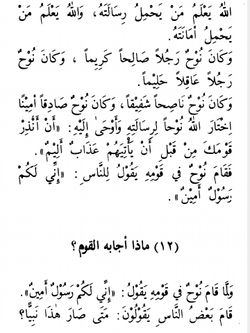 اللهُ يَعْلَمُ مَنْ يَحْمِلُ رِسَالَتَهُ، وَاللهُ يَعْلَمُ مَنْ
يَحْمِلُ أَمَانَتَهُ.
وَكَانَ نُوْحٌ رَجُلاً صَالِحاً كَرِيماً ، وَكَانَ نُوْحٌ
رَجُلاً عَاقِلاً حَلِيْماً.
وَكَانَ نُوْحٌ نَاصِحاً شَفِيْقاً، وَكَانَ نُوْحٌ صَادِقاً أَمِيْنًا
اِخْتَارَ اللهُ نُوْحاً لِرِسَالَتِهِ وَأَوْحَى إِلَيْهِ: «أَنْ أَنْذِرْ
قَوْمَكَ مِنْ قَبْلِ أَنْ يَأْتِيَهُمْ عَذَابٌ أَلِيْمٌ».
فَقَامَ نُوْحٌ فِي قَوْمِهِ يَقُوْلُ لِلنَّاسِ: «إِنِّي لَكُمْ
رَسُوْلٌ أَمِيْنٌ».
(١٢) ماذا أجابه القوم؟
وَلَمَّا قَامَ نُوْحٌ فِي قَوْمِهِ يَقُوْلُ: «إِنِّي لَكُمْ رَسُوْلٌ أَمِيْنٌ».
قَامَ بَعْضُ النَّاسِ يَقُوْلُوْنَ: مَتَى صَارَ هٰذَا نَبِيًّا؟